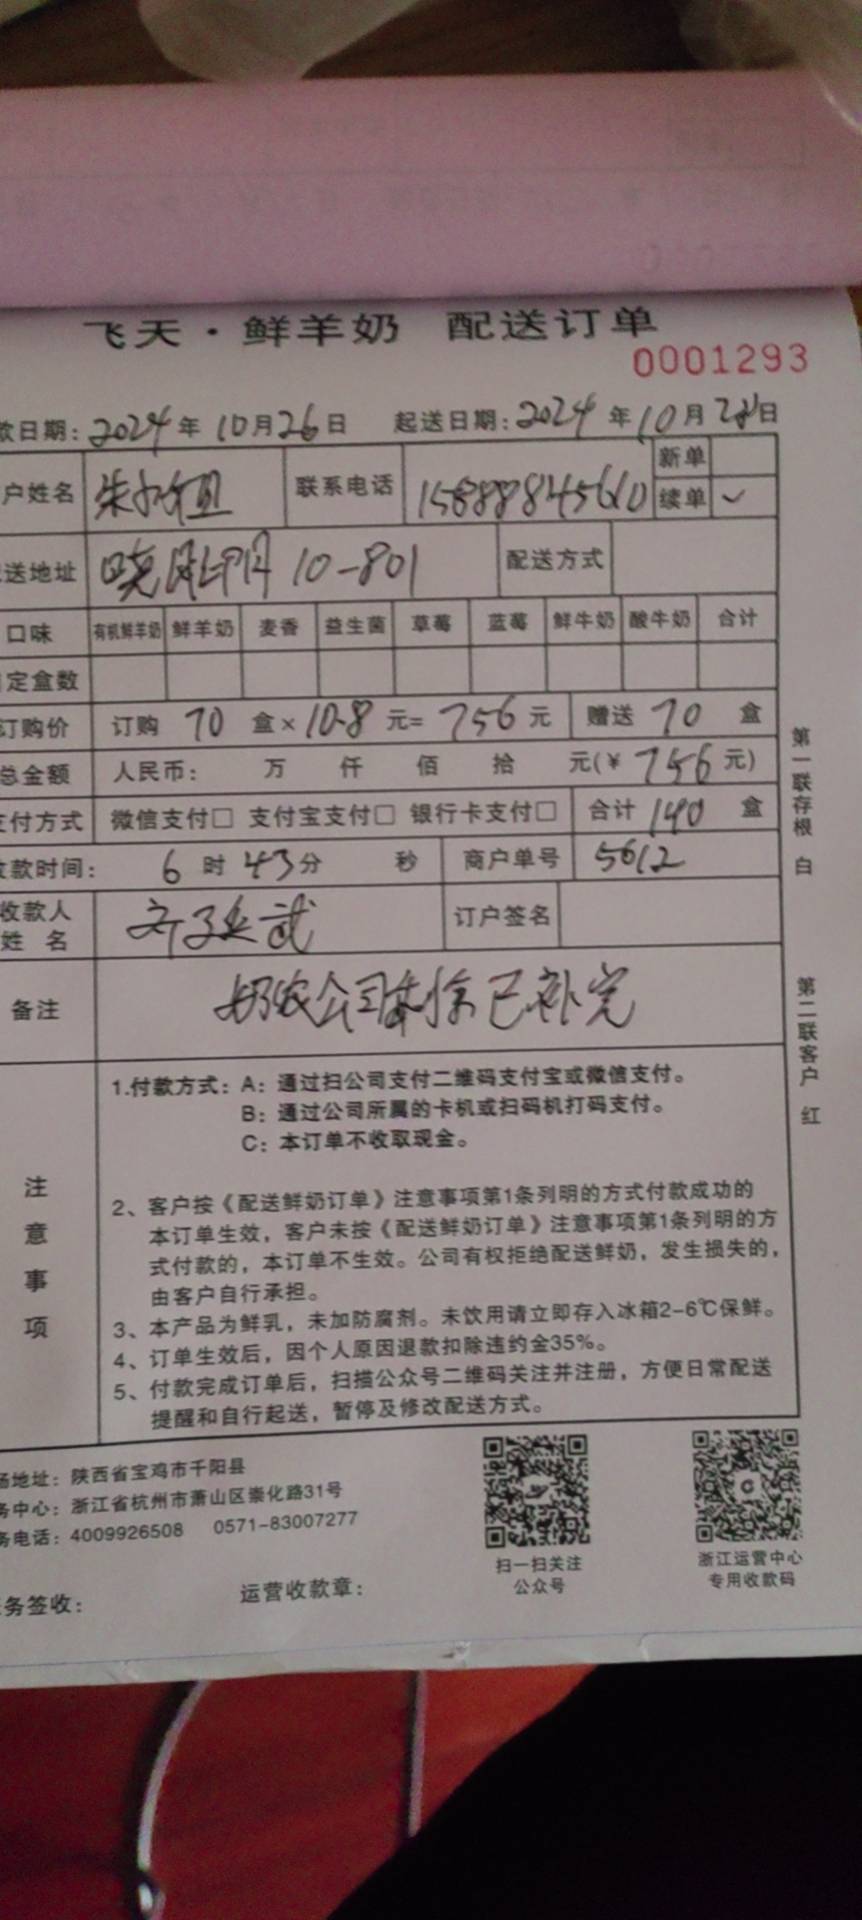 飞天·鲜羊奶 配送订单
0001293
款日期：2024年10月26日 起送日期：2024年10月 日
户姓名 朱 姐 联系电话 15888845610 新单
续单 ✓
送地址 晓 10-801 配送方式
口味 有机鲜羊奶 鲜羊奶 麦香 益生菌 草莓 蓝莓 鲜牛奶 酸牛奶 合计
定盒数
订购价 订购 70 盒×10.8元=756元 赠送 70 盒
总金额 人民币： 万 仟 佰 拾 元(¥756元)
支付方式 微信支付□ 支付宝支付□ 银行卡支付□ 合计 140 盒
收款时间： 6时43分 秒 商户单号 5612
收款人姓名 武 订户签名
备注 奶农公司 已补完
注意事项
1.付款方式：A：通过扫公司支付二维码支付宝或微信支付。
B：通过公司所属的卡机或扫码机打码支付。
C：本订单不收取现金。
2、客户按《配送鲜奶订单》注意事项第1条列明的方式付款成功的
本订单生效，客户未按《配送鲜奶订单》注意事项第1条列明的方
式付款的，本订单不生效。公司有权拒绝配送鲜奶，发生损失的，
由客户自行承担。
3、本产品为鲜乳，未加防腐剂。未饮用请立即存入冰箱2-6℃保鲜。
4、订单生效后，因个人原因退款扣除违约金35%。
5、付款完成订单后，扫描公众号二维码关注并注册，方便日常配送
提醒和自行起送，暂停及修改配送方式。
第一联存根 白
第二联客户 红
场地址：陕西省宝鸡市千阳县
务中心：浙江省杭州市萧山区崇化路31号
务电话：4009926508 0571-83007277
扫一扫关注
公众号
浙江运营中心
专用收款码
务签收： 运营收款章：